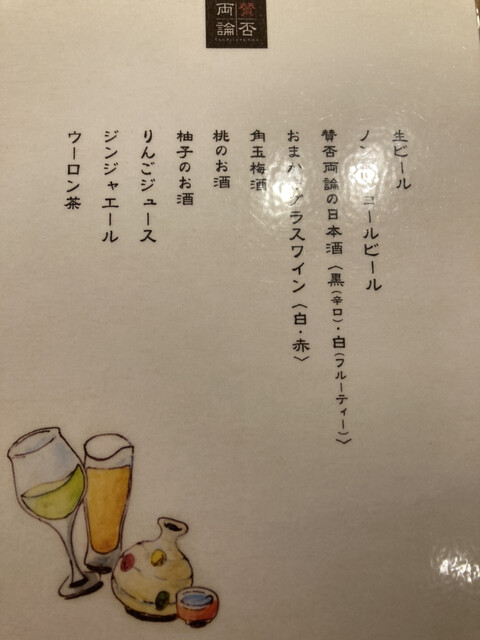 賛否両論
生ビール
ノン コールビール
賛否両論の日本酒〈黒(辛口)・白(フルーティー)〉
おまか グラスワイン〈白・赤〉
角玉梅酒
桃のお酒
柚子のお酒
りんごジュース
ジンジャエール
ウーロン茶